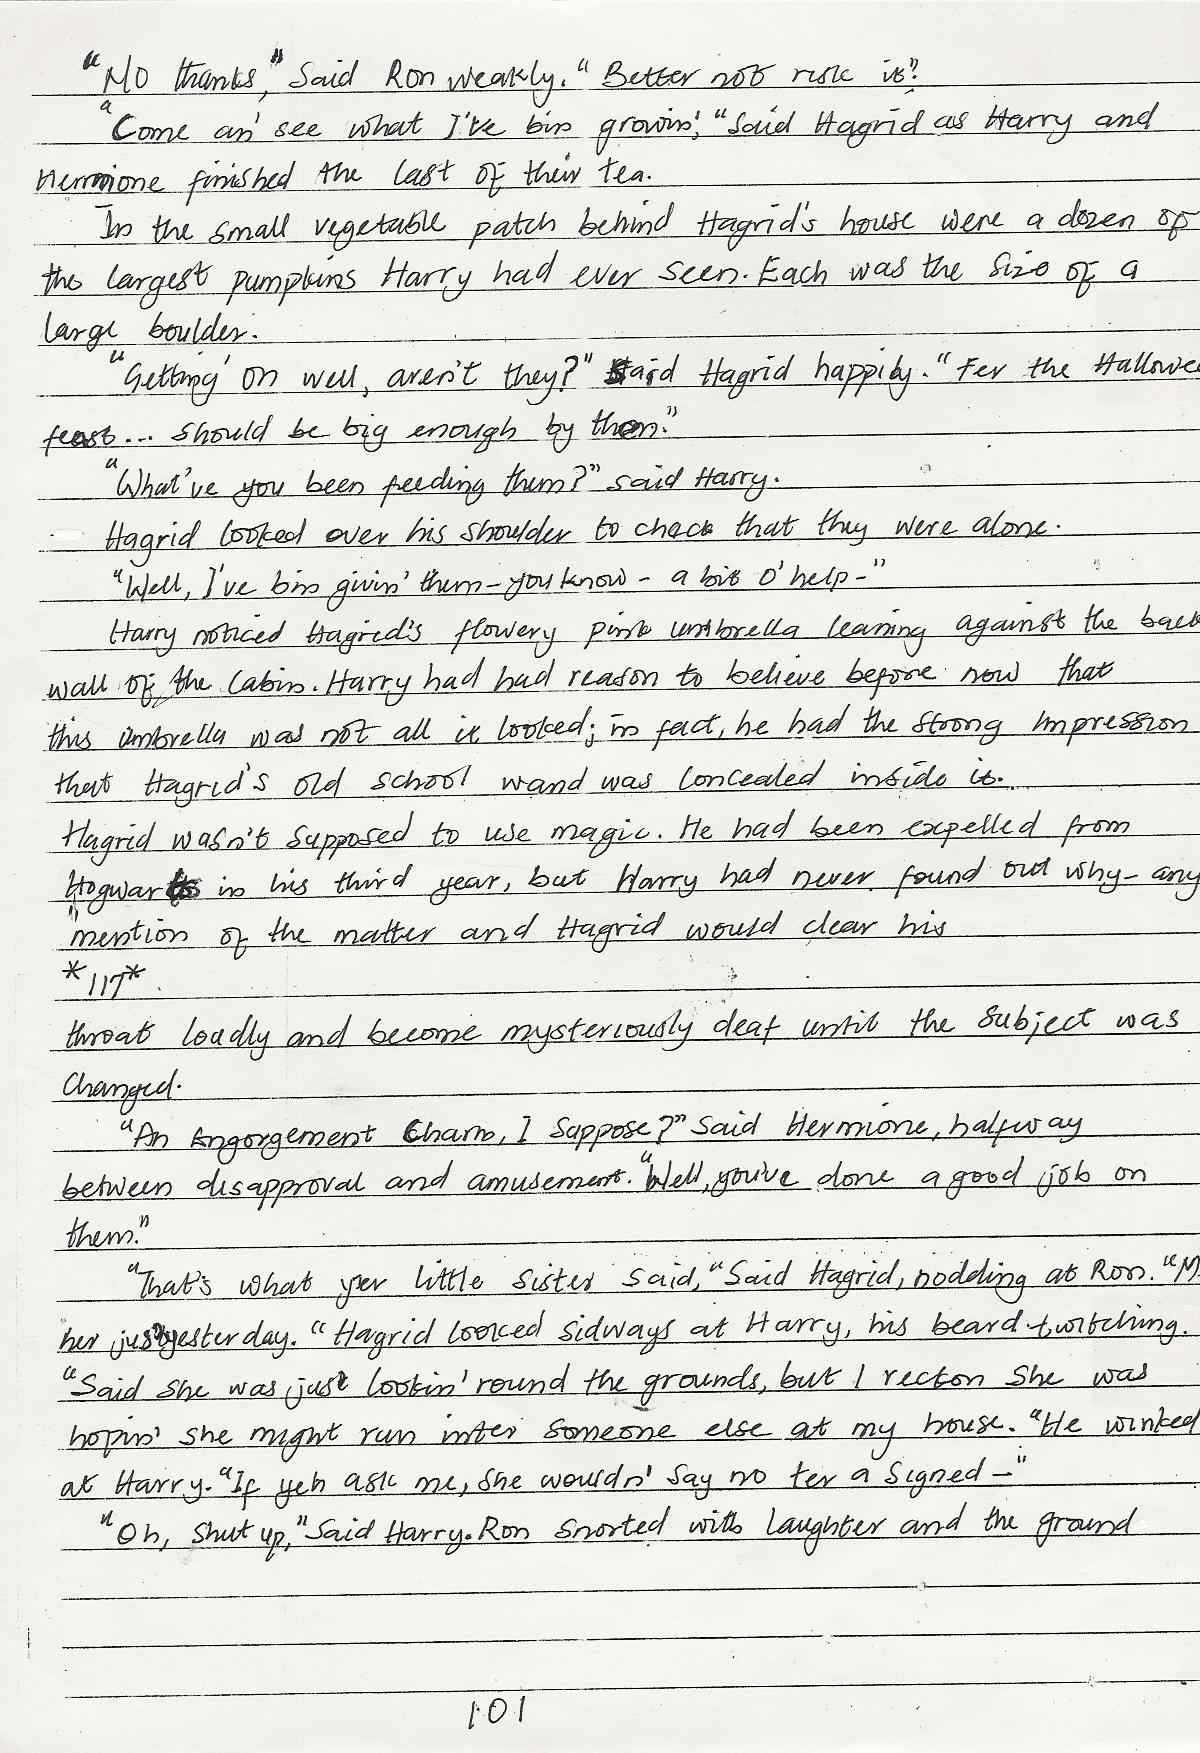 "No thanks," Said Ron weakly. "Better not risk it".
"Come an' see what I've bin growin'," Said Hagrid as Harry and
Hermione finished the last of their tea.
In the small vegetable patch behind Hagrid's house were a dozen of
the largest pumpkins Harry had ever seen. Each was the size of a
large boulder.
"Getting' on well, aren't they?" Said Hagrid happily. "Fer the Hallowe
feast... should be big enough by then."
"What've you been feeding them?" said Harry.
Hagrid looked over his shoulder to check that they were alone.
"Well, I've bin givin' them - you know - a bit o' help -"
Harry noticed Hagrid's flowery pink umbrella leaning against the back
wall of the Cabin. Harry had had reason to believe before now that
this umbrella was not all it looked; in fact, he had the strong impression
that Hagrid's old school wand was concealed inside it.
Hagrid wasn't supposed to use magic. He had been expelled from
Hogwarts in his third year, but Harry had never found out why - any
mention of the matter and Hagrid would clear his
*117*
throat loudly and become mysteriously deaf until the subject was
Changed.
"An Engorgement Charm, I Suppose?" Said Hermione, halfway
between disapproval and amusement. "Well, you've done a good job on
them."
"That's what yer little sister said," Said Hagrid, nodding at Ron. "M
her jus' yesterday." Hagrid looked sidways at Harry, his beard twitching.
"Said she was just lookin' round the grounds, but I reckon she was
hopin' she might run inter someone else at my house. "He winked
at Harry. "If yeh ask me, she wouldn' say no ter a signed -"
"Oh, shut up," Said Harry. Ron snorted with laughter and the ground
101